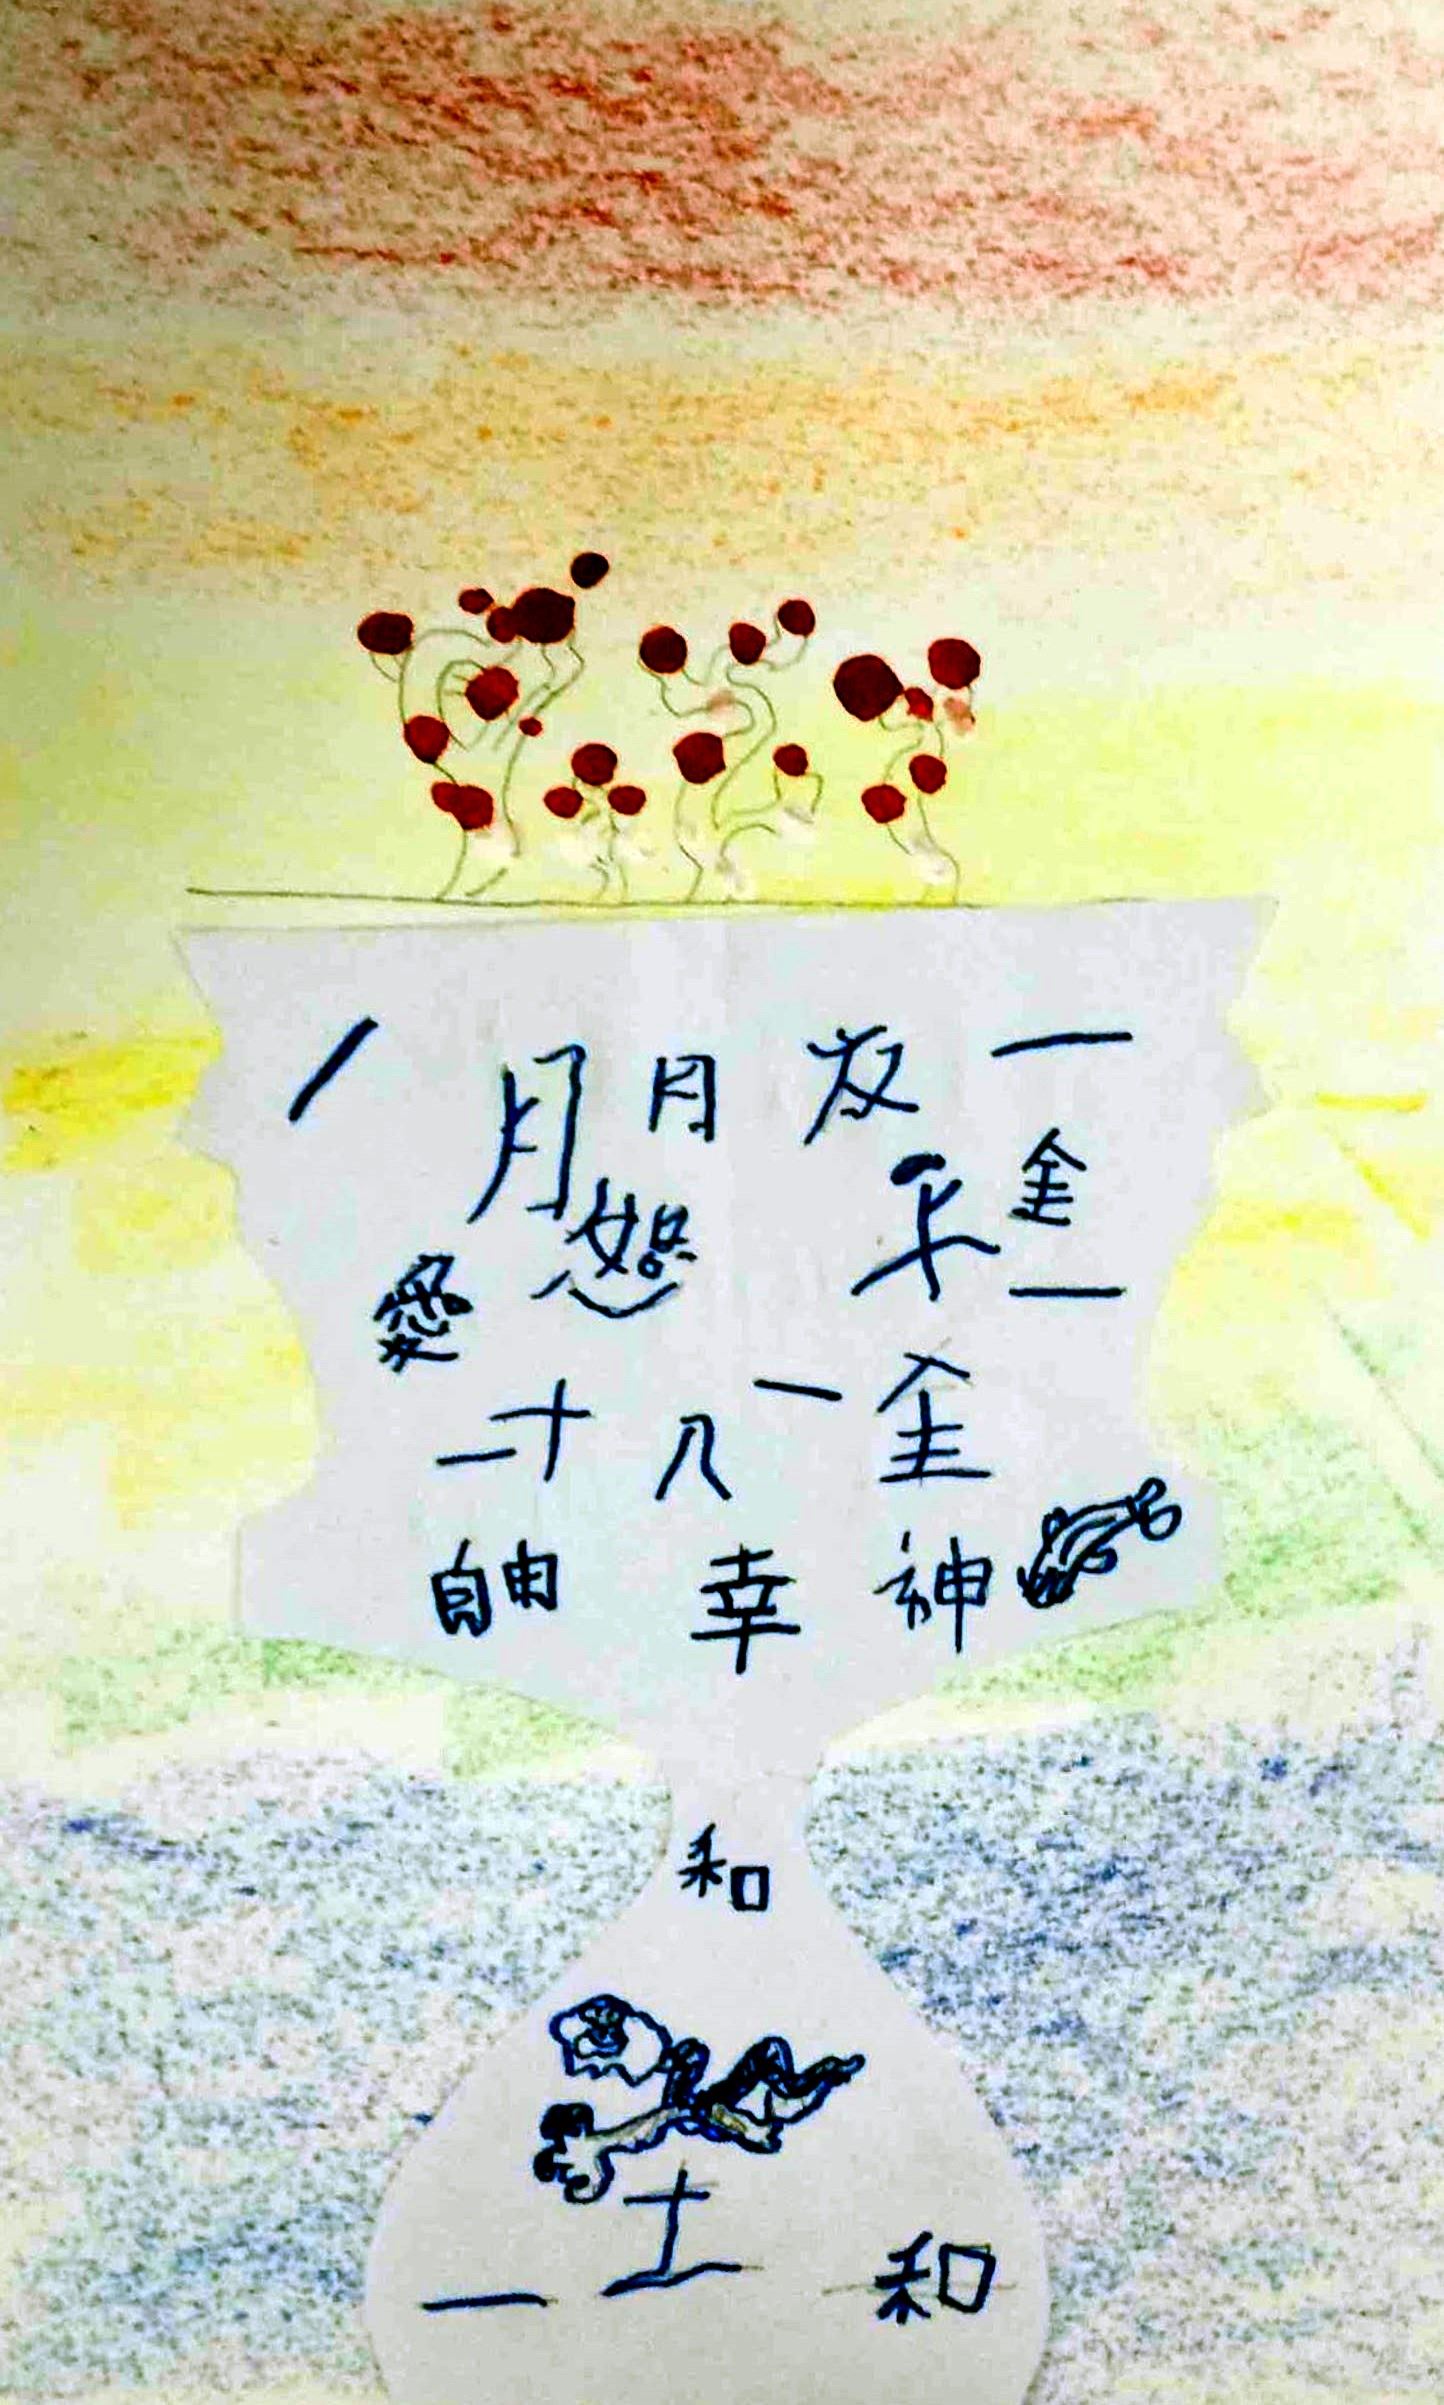 月 月 友 一
金
愛 恕 一
二十 八 一 金
自由 幸 神
和
一 土 和